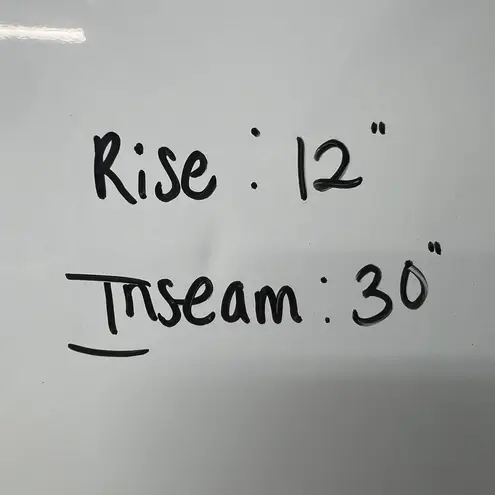 Rise : 12"
Inseam : 30"